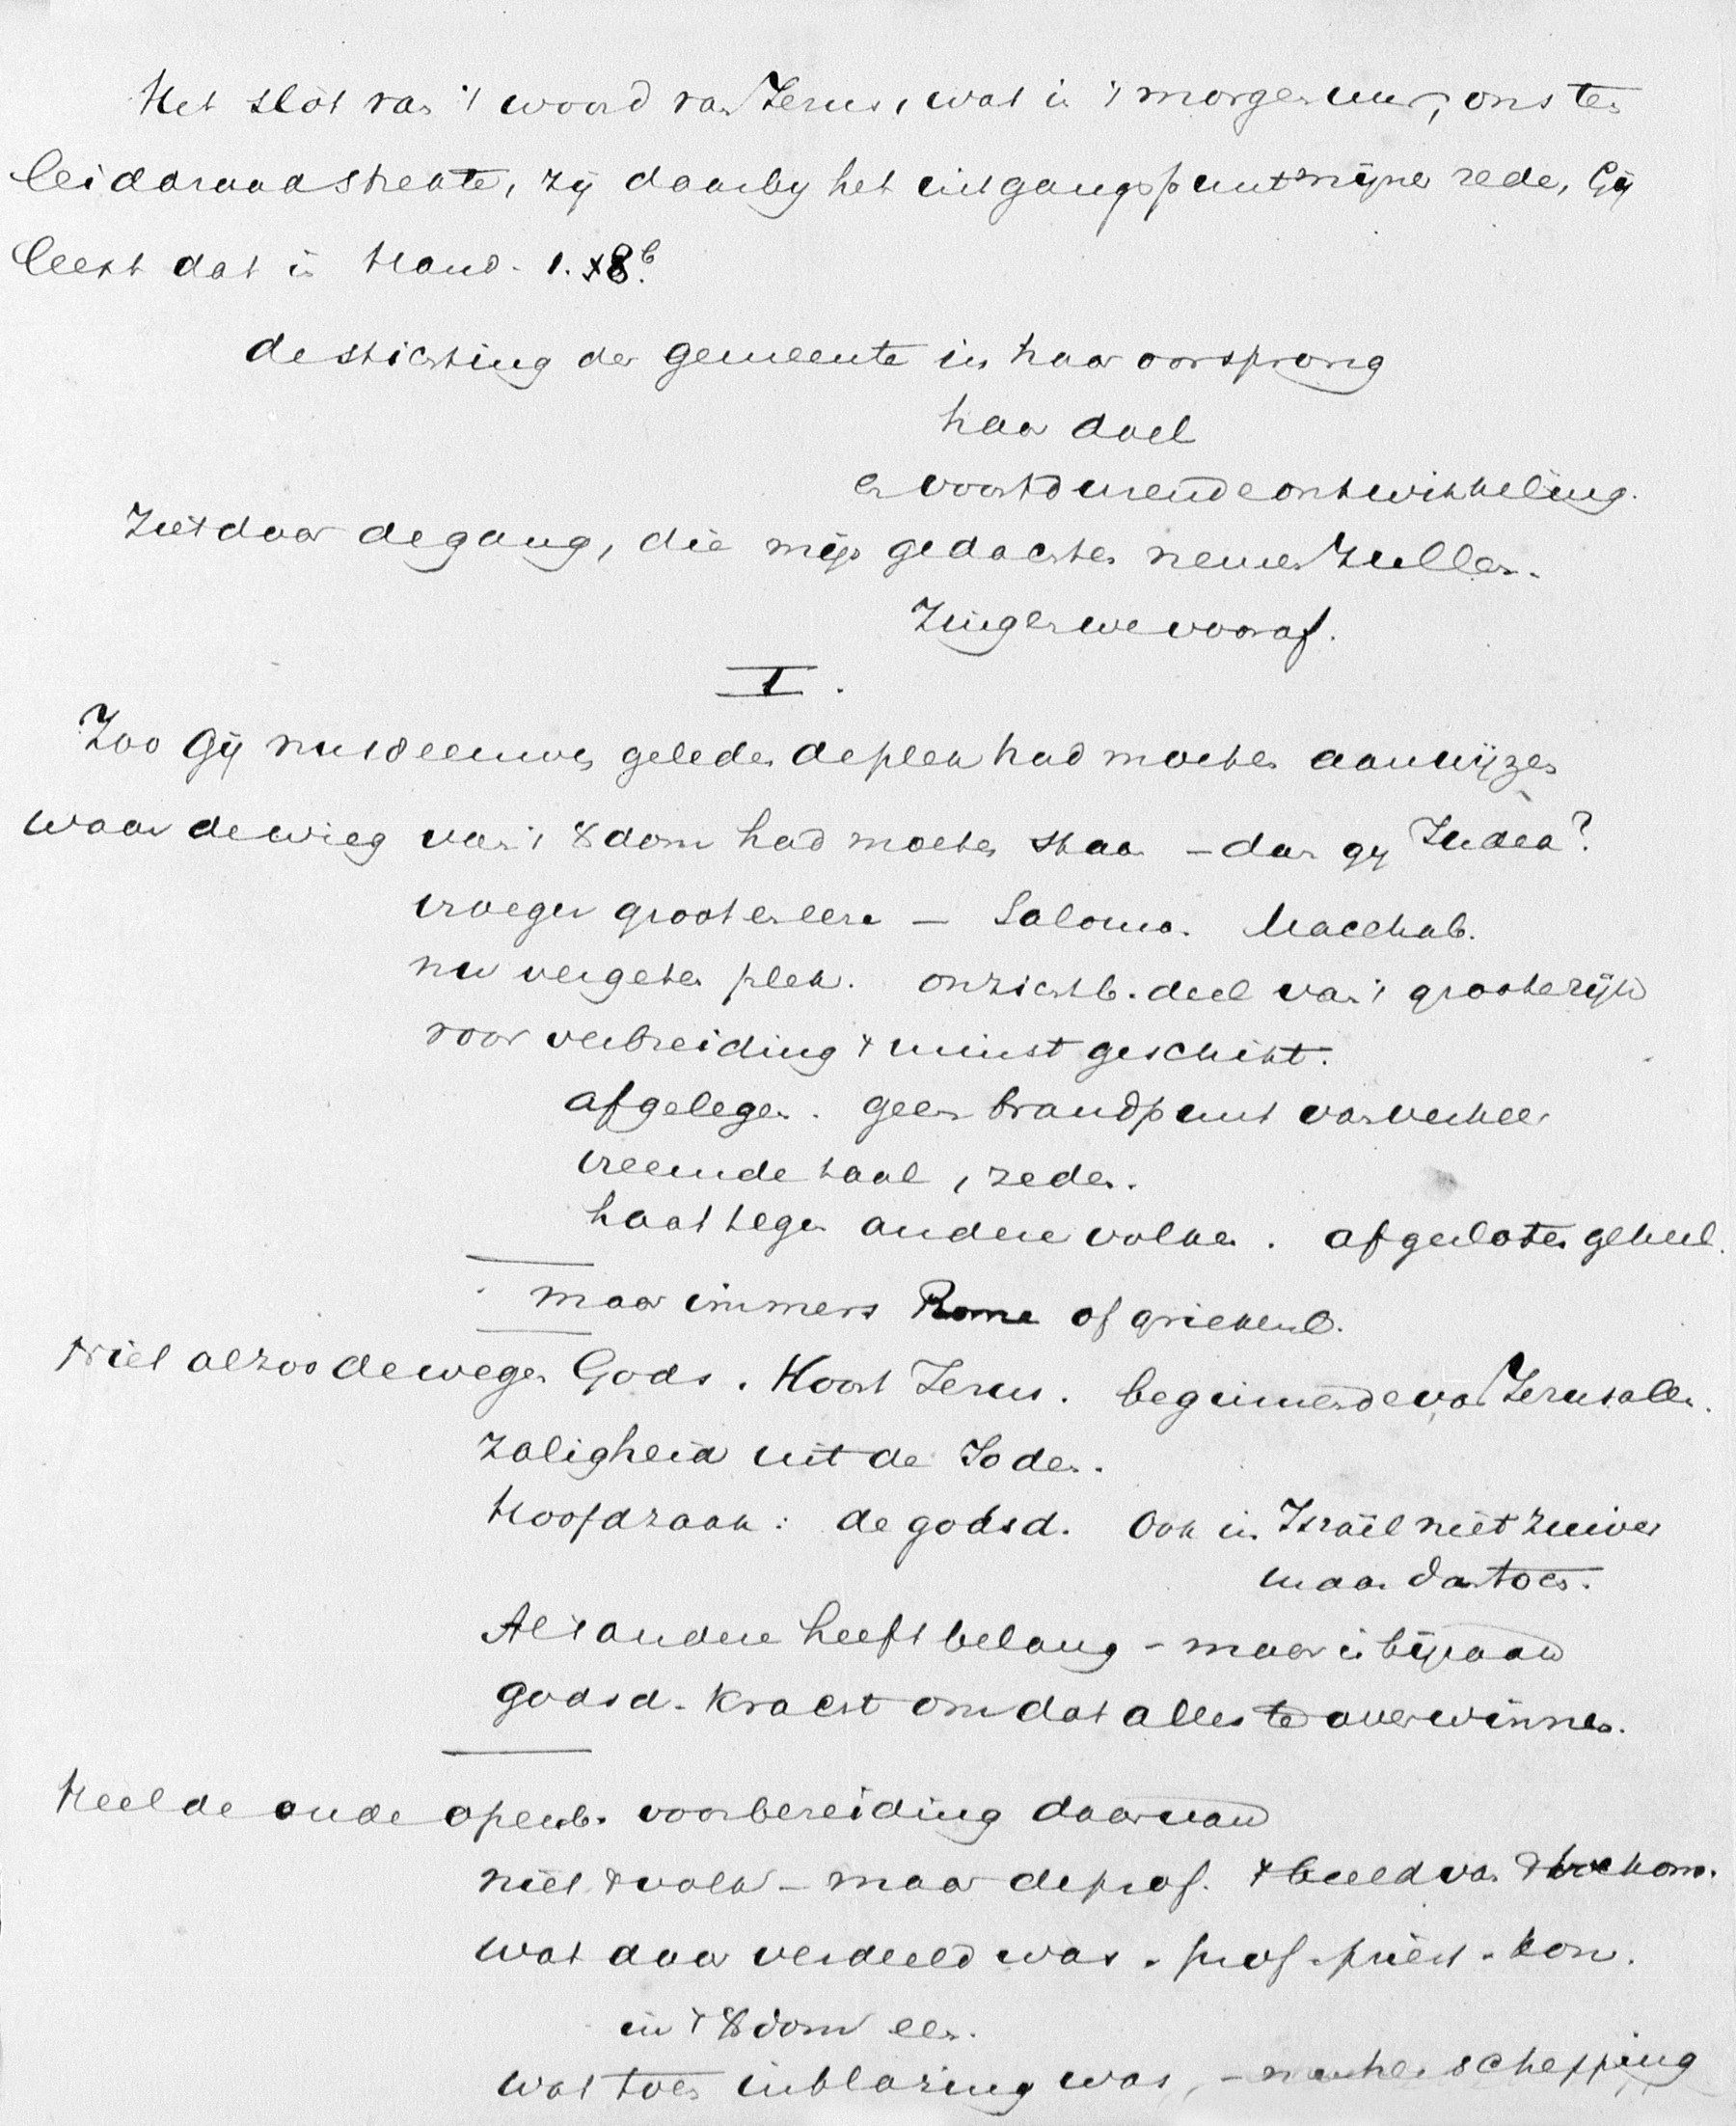 Het slot van 't woord van Jezus, wat in 't morgenuur, ons ten
leiddraad strekte, zij daarby het uitgangspunt mijner rede, Gij
leest dat in Hand. 1. 8b.
de stichting der gemeente in haar oorsprong
haar doel
en voortdurende ontwikkeling.
Ziet daar de gang, die mijn gedachten nemen zullen.
Zingen we vooraf.
I.
Zoo Gij nu 18 eeuwen geleden de plek had moeten aanwijzen
waar de wieg van 't Xdom had moeten staan – dan gij Judea?
vroeger groot en eere – Salomo. Macchab.
nu vergeten plek. onzichtb. deel van 't groote rijk
voor verbreiding 't minst geschikt.
afgelegen. geen brandpunt van verkeer
vreemde taal, zeden.
haat tegen andere volken. afgesloten geheel.
maar immers Rome of griekenl.
Niet alzoo de wegen Gods. Hoort Jezus. beginnende van Jeruzalem.
zaligheid uit de Joden.
Hoofdzaak: de godsd. Ook in Israël niet zuiver
maar dan toch.
Al 't andere heeft belang – maar is bijzaak
godsd. kracht om dat alles te overwinnen.
Heel de oude openb. voorbereiding daarvan
niet 't volk – maar de prof. 't beeld van 't
wat daar verdeeld was. prof. priest. kon.
in 't Xdom een.
wat toen inblazing was, – herschepping